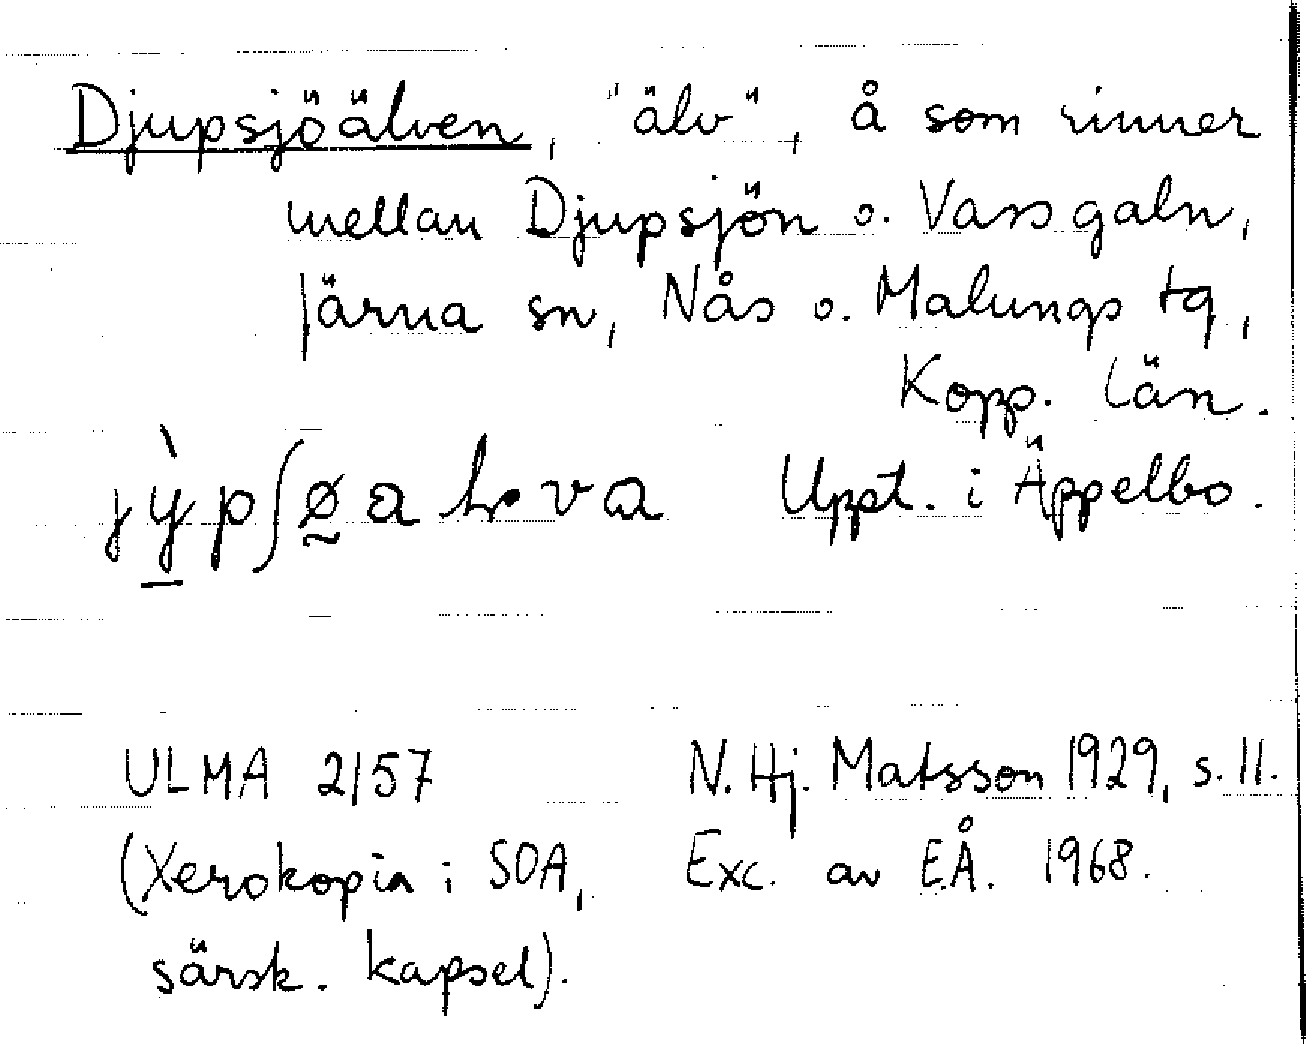 Djupsjöälven, "älv", å som rinner
mellan Djupsjön o. Vassgaln,
Järna sn, Nås o. Malungs tg,
Kopp. län.
Uppt. i Äppelbo.
ULMA 2157 N. Hj. Matsson 1929, s. 11.
(Xerokopia i SOA, Exc. av E.Å. 1968.
särsk. kapsel).